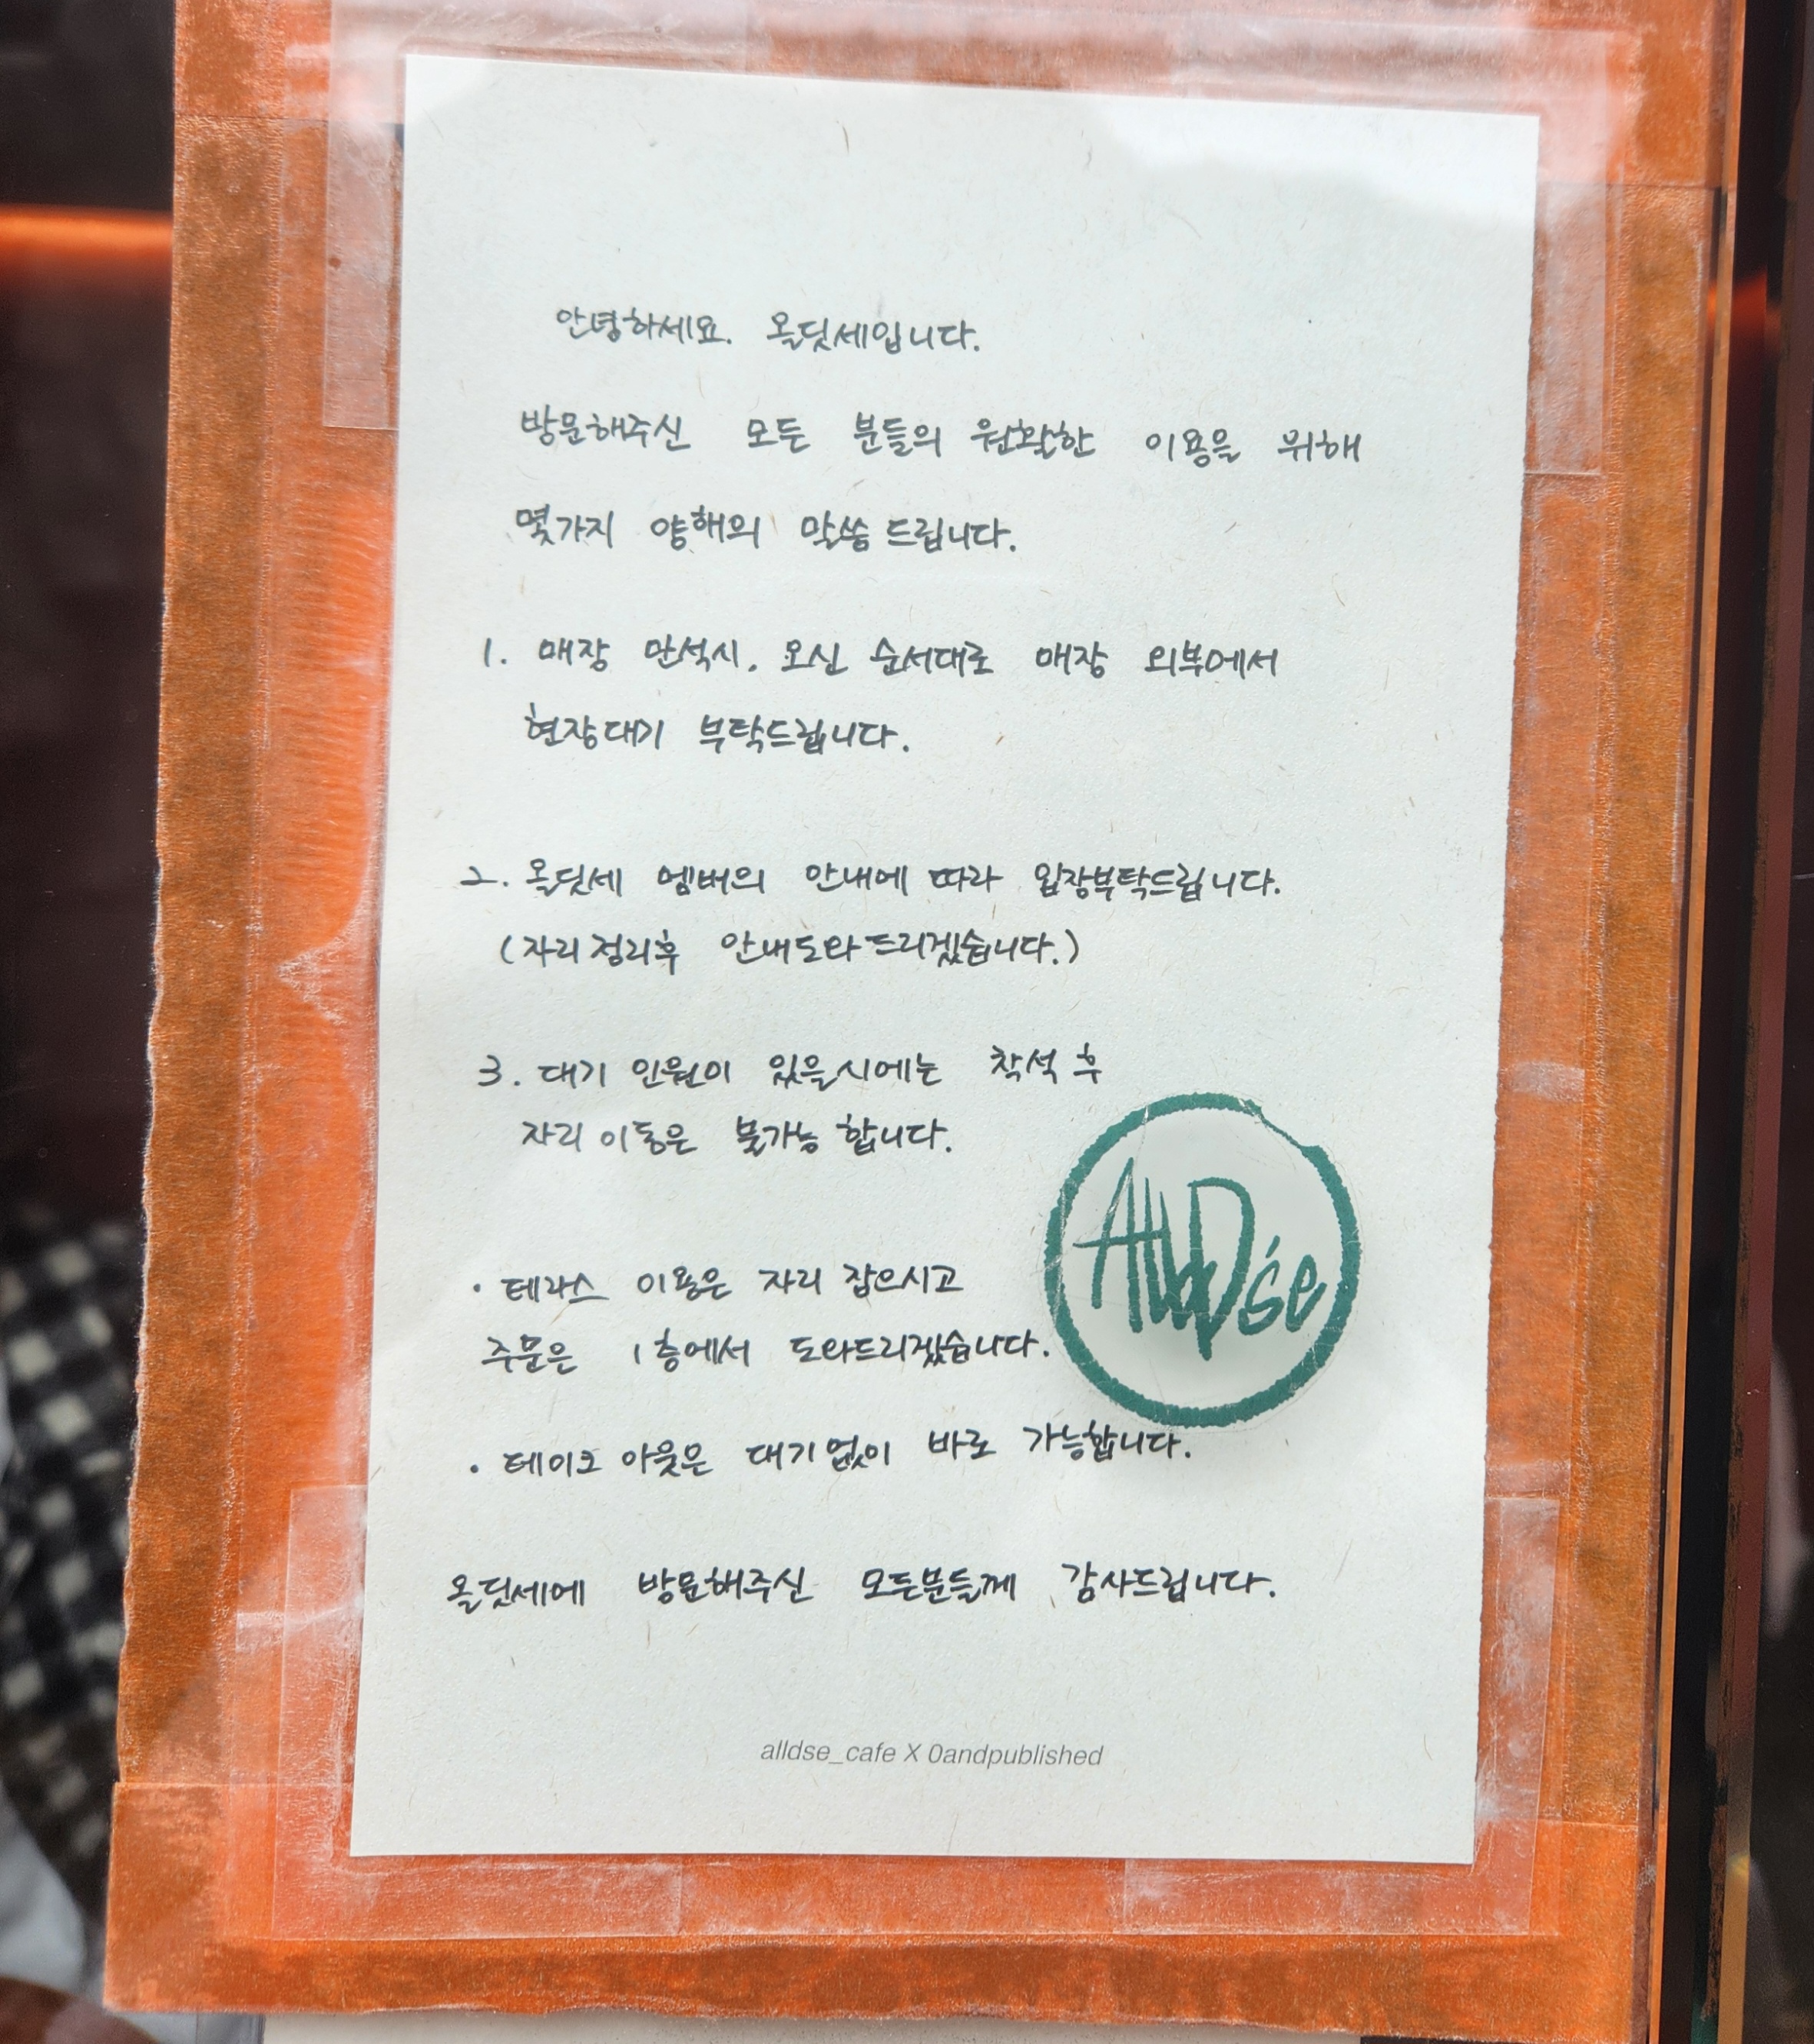 안녕하세요. 올딧세입니다.
방문해주신 모든 분들의 원활한 이용을 위해
몇가지 양해의 말씀 드립니다.
1. 매장 만석시, 오신 순서대로 매장 외부에서
현장대기 부탁드립니다.
2. 올딧세 멤버의 안내에 따라 입장부탁드립니다.
(자리 정리후 안내도와 드리겠습니다.)
3. 대기 인원이 있을시에는 착석 후
자리 이동은 불가능 합니다.
AllDśe
· 테라스 이용은 자리 잡으시고
주문은 1층에서 도와드리겠습니다.
· 테이크 아웃은 대기없이 바로 가능합니다.
올딧세에 방문해주신 모든분들께 감사드립니다.
alldse_cafe X 0andpublished